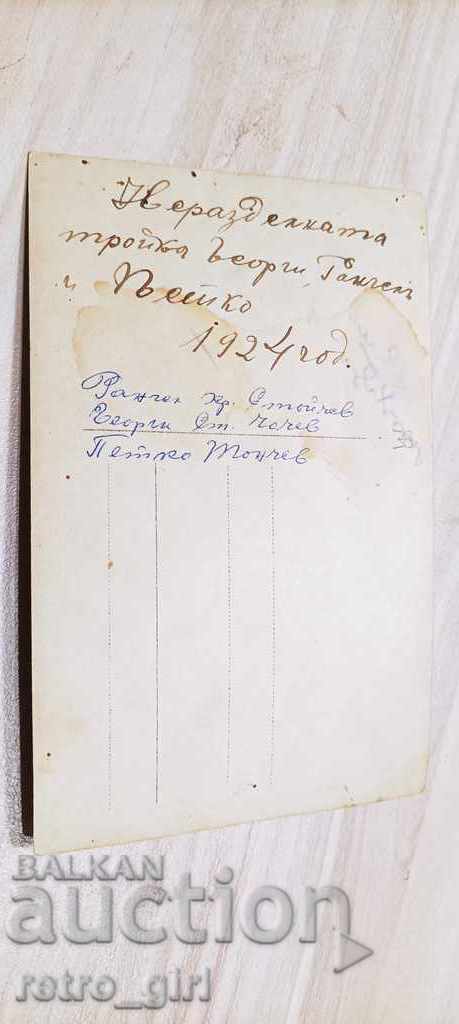 Неразделната
тройка Георги, Ганчен
и Петко
1924 год.
Ганчен Хр. Стойчев
Георги Ст. Чочев
Петко Тончев
BALKAN
auction
retro_girl